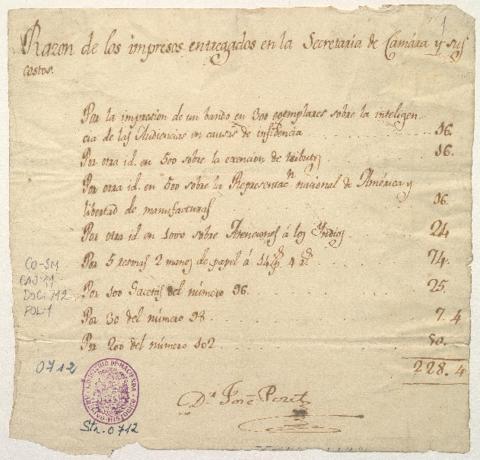 1
Razon de los impresos entregados en la Secretaria de Camára y sus
costos.
Por la impresion de un bando en 300 egemplares sobre la inteligen
cia de las Audiencias en causas de infidencia 36.
Por otra id. en 500 sobre la exencion de tributos 36.
Por otra id en 500 sobre la Representac.n nacional de América y
libertad de manufacturas 36.
Por otra id en 1000 sobre Atenciones á los Yndios 24
Por 5 resmas 2 manos de papel á 14 4 74.
Por 100 Gacetas del número 96. 25.
Por 30 del número 98. 7. 4
Por 200 del número 102 50.
228. 4
CO-SM
CAJ.11
DOC.712
FOL.1
0712
MINISTERIO DE HACIENDA
ARCHIVO HISTORICO
Sta. 0712
D.n José Perez